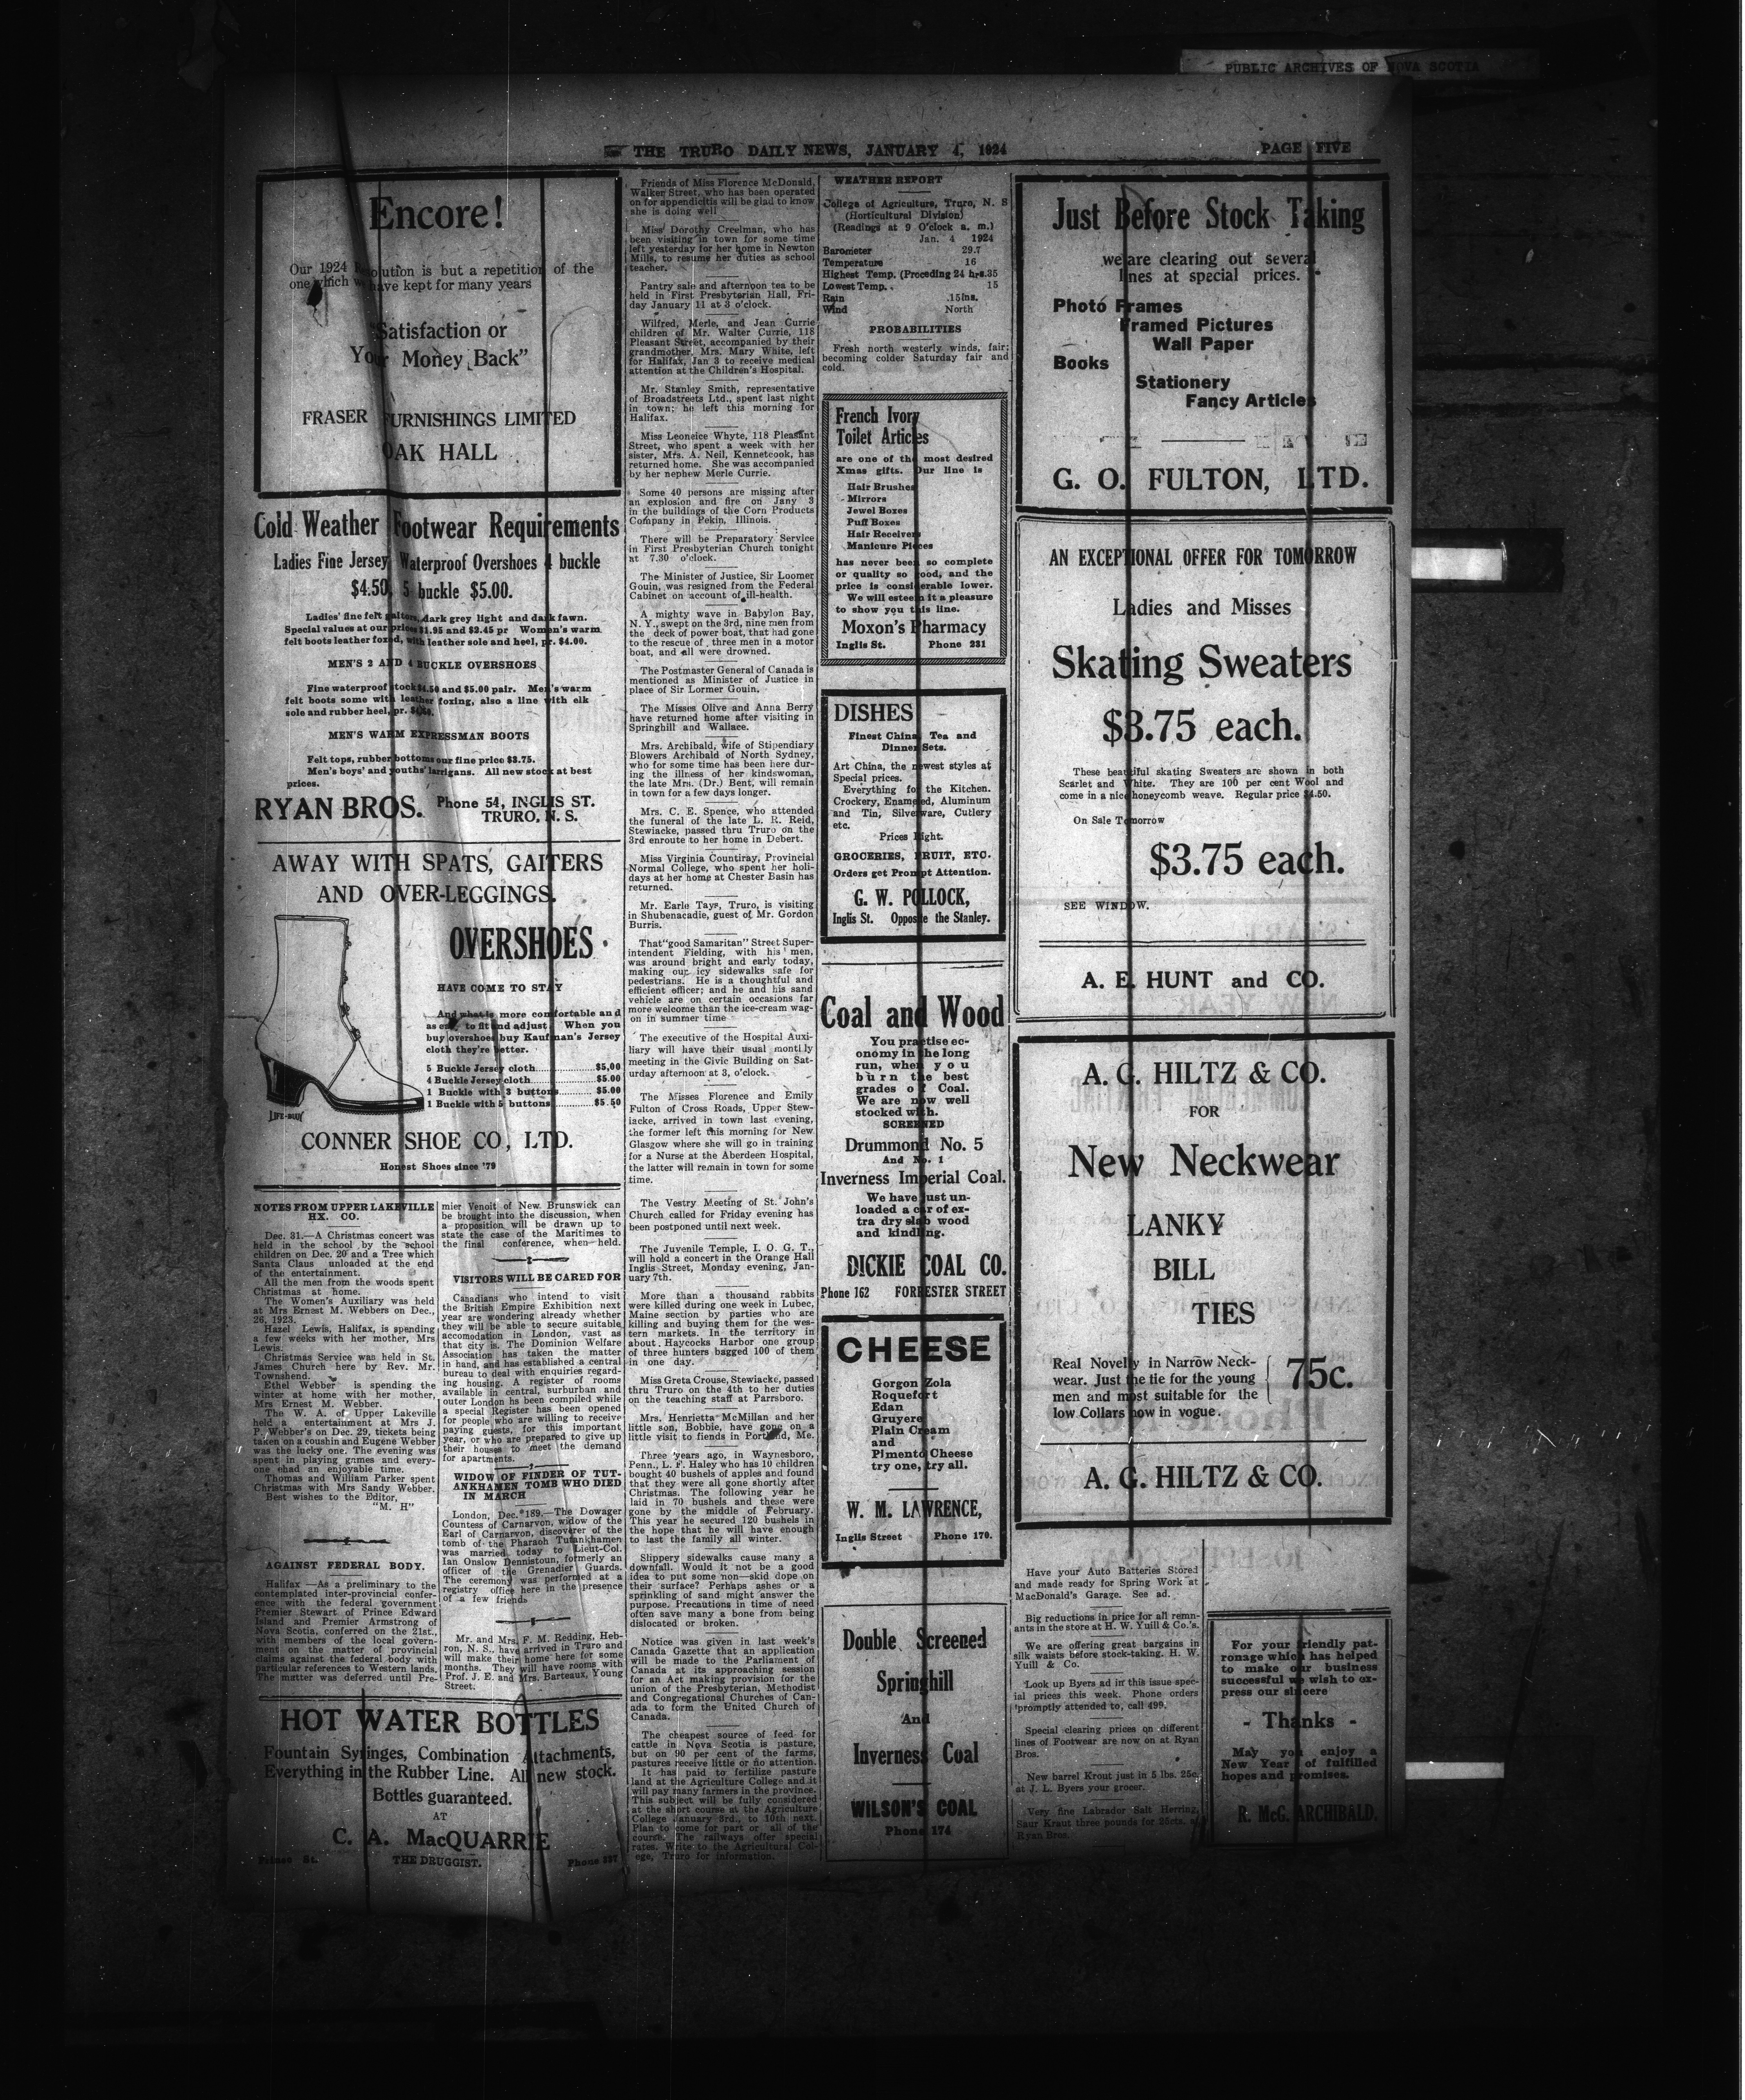 PUBLIC ARCHIVES OF NOVA SCOTIA
THE TRURO DAILY NEWS, JANUARY 4, 1924
PAGE FIVE
Encore!
Our 1924 Resolution is but a repetition of the
one which we have kept for many years
"Satisfaction or
Your Money Back"
FRASER FURNISHINGS LIMITED
OAK HALL
Cold Weather Footwear Requirements
Ladies Fine Jersey Waterproof Overshoes 4 buckle
$4.50, 5 buckle $5.00.
Ladies' fine felt gaiters, dark grey light and dark fawn.
Special values at our prices $1.95 and $2.45 pr Women's warm
felt boots leather foxed, with leather sole and heel, pr. $4.00.
MEN'S 2 AND 4 BUCKLE OVERSHOES
Fine waterproof stock $4.50 and $5.00 pair. Men's warm
felt boots some with leather foxing, also a line with elk
sole and rubber heel, pr.
MEN'S WARM EXPRESSMAN BOOTS
Felt tops, rubber bottoms our fine price $3.75.
Men's boys' and youths' larrigans. All new stock at best
prices.
RYAN BROS. Phone 54, INGLIS ST.
TRURO, N. S.
AWAY WITH SPATS, GAITERS
AND OVER-LEGGINGS.
OVERSHOES
HAVE COME TO STAY
And what is more comfortable and
as easy to fit and adjust. When you
buy overshoes buy Kaufman's Jersey
cloth they're better.
5 Buckle Jersey cloth..............$5.00
4 Buckle Jersey cloth..............$5.00
1 Buckle with 3 buttons..........$5.00
1 Buckle with 5 buttons..........$5.50
LIFE-BUOY
CONNER SHOE CO, LTD.
Honest Shoes since '79
NOTES FROM UPPER LAKEVILLE
HX. CO.
Dec. 31.—A Christmas concert was
held in the school by the school
children on Dec. 20 and a Tree which
Santa Claus unloaded at the end
of the entertainment.
All the men from the woods spent
Christmas at home.
The Women's Auxiliary was held
at Mrs Ernest M. Webbers on Dec.,
26, 1923.
Hazel Lewis, Halifax, is spending
a few weeks with her mother, Mrs
Lewis.
Christmas Service was held in St.
James Church here by Rev. Mr.
Townshend.
Ethel Webber is spending the
winter at home with her mother,
Mrs Ernest M. Webber.
The W. A. of Upper Lakeville
held a entertainment at Mrs J.
P. Webber's on Dec. 29, tickets being
taken on a coushin and Eugene Webber
was the lucky one. The evening was
spent in playing games and every-
one ehad an enjoyable time.
Thomas and William Parker spent
Christmas with Mrs Sandy Webber.
Best wishes to the Editor,
"M. H"
AGAINST FEDERAL BODY.
Halifax —As a preliminary to the
contemplated inter-provincial confer-
ence with the federal government
Premier Stewart of Prince Edward
Island and Premier Armstrong of
Nova Scotia, conferred on the 21st.,
with members of the local govern-
ment on the matter of provincial
claims against the federal body with
particular references to Western lands.
The matter was deferred until Pre-
mier Venoit of New Brunswick can
be brought into the discussion, when
a proposition will be drawn up to
state the case of the Maritimes to
the final conference, when held.
VISITORS WILL BE CARED FOR
Canadians who intend to visit
the British Empire Exhibition next
year are wondering already whether
they will be able to secure suitable
accomodation in London, vast as
that city is. The Dominion Welfare
Association has taken the matter
in hand, and has established a central
bureau to deal with enquiries regard-
ing housing. A register of rooms
available in central, surburban and
outer London hs been compiled while
a special Register has been opened
for people who are willing to receive
paying guests, for this important
year, or who are prepared to give up
their houses to meet the demand
for apartments.
WIDOW OF FINDER OF TUT-
ANKHAMEN TOMB WHO DIED
IN MARCH
London, Dec. 189.—The Dowager
Countess of Carnarvon, widow of the
Earl of Carnarvon, discoverer of the
tomb of the Pharaoh Tutankhamen
was married today to Lieut-Col.
Ian Onslow Dennistoun, formerly an
officer of the Grenadier Guards.
The ceremony was performed at a
registry office here in the presence
of a few friends
Mr. and Mrs. F. M. Redding, Heb-
ron, N. S., have arrived in Truro and
will make their home here for some
months. They will have rooms with
Prof. J. E. and Mrs. Barteaux, Young
Street.
HOT WATER BOTTLES
Fountain Syringes, Combination Attachments,
Everything in the Rubber Line. All new stock.
Bottles guaranteed.
AT
C. A. MacQUARRIE
Prince St. THE DRUGGIST. Phone 337
Friends of Miss Florence McDonald,
Walker Street, who has been operated
on for appendicitis will be glad to know
she is doing well
Miss Dorothy Creelman, who has
been visiting in town for some time
left yesterday for her home in Newton
Mills, to resume her duties as school
teacher.
Pantry sale and afternoon tea to be
held in First Presbyterian Hall, Fri-
day January 11 at 3 o'clock.
Wilfred, Merle, and Jean Currie
children of Mr. Walter Currie, 118
Pleasant Street, accompanied by their
grandmother, Mrs. Mary White, left
for Halifax, Jan 3 to receive medical
attention at the Children's Hospital.
Mr. Stanley Smith, representative
of Broadstreets Ltd., spent last night
in town; he left this morning for
Halifax.
Miss Leoneice Whyte, 118 Pleasant
Street, who spent a week with her
sister, Mrs. A. Neil, Kennetcook, has
returned home. She was accompanied
by her nephew Merle Currie.
Some 40 persons are missing after
an explosion and fire on Jany 3
in the buildings of the Corn Products
Company in Pekin, Illinois.
There will be Preparatory Service
in First Presbyterian Church tonight
at 7.30 o'clock.
The Minister of Justice, Sir Loomer
Gouin, was resigned from the Federal
Cabinet on account of ill-health.
A mighty wave in Babylon Bay,
N. Y., swept on the 3rd, nine men from
the deck of power boat, that had gone
to the rescue of three men in a motor
boat, and all were drowned.
The Postmaster General of Canada is
mentioned as Minister of Justice in
place of Sir Lormer Gouin.
The Misses Olive and Anna Berry
have returned home after visiting in
Springhill and Wallace.
Mrs. Archibald, wife of Stipendiary
Blowers Archibald of North Sydney,
who for some time has been here dur-
ing the illness of her kindswoman,
the late Mrs. (Dr.) Bent, will remain
in town for a few days longer.
Mrs. C. E. Spence, who attended
the funeral of the late L. R. Reid,
Stewiacke, passed thru Truro on the
3rd enroute to her home in Debert.
Miss Virginia Countiray, Provincial
Normal College, who spent her holi-
days at her home at Chester Basin has
returned.
Mr. Earle Tays, Truro, is visiting
in Shubenacadie, guest of Mr. Gordon
Burris.
That "good Samaritan" Street Super-
intendent Fielding, with his men,
was around bright and early today,
making our icy sidewalks safe for
pedestrians. He is a thoughtful and
efficient officer; and he and his sand
vehicle are on certain occasions far
more welcome than the ice-cream wag-
on in summer time
The executive of the Hospital Auxi-
liary will have their usual montlly
meeting in the Civic Building on Sat-
urday afternoon at 3, o'clock.
The Misses Florence and Emily
Fulton of Cross Roads, Upper Stew-
iacke, arrived in town last evening,
the former left this morning for New
Glasgow where she will go in training
for a Nurse at the Aberdeen Hospital,
the latter will remain in town for some
time.
The Vestry Meeting of St. John's
Church called for Friday evening has
been postponed until next week.
The Juvenile Temple, I. O. G. T.,
will hold a concert in the Orange Hall
Inglis Street, Monday evening, Jan-
uary 7th.
More than a thousand rabbits
were killed during one week in Lubec,
Maine section by parties who are
killing and buying them for the wes-
tern markets. In the territory in
about Haycocks Harbor one group
of three hunters bagged 100 of them
in one day.
Miss Greta Crouse, Stewiacke, passed
thru Truro on the 4th to her duties
on the teaching staff at Parrsboro.
Mrs. Henrietta McMillan and her
little son, Bobbie, have gone on a
little visit to fiends in Portland, Me.
Three years ago, in Waynesboro,
Penn., L. F. Haley who has 10 children
bought 40 bushels of apples and found
that they were all gone shortly after
Christmas. The following year he
laid in 70 bushels and these were
gone by the middle of February.
This year he secured 120 bushels in
the hope that he will have enough
to last the family all winter.
Slippery sidewalks cause many a
downfall. Would it not be a good
idea to put some non—skid dope on
their surface? Perhaps ashes or a
sprinkling of sand might answer the
purpose. Precautions in time of need
often save many a bone from being
dislocated or broken.
Notice was given in last week's
Canada Gazette that an application
will be made to the Parliament of
Canada at its approaching session
for an Act making provision for the
union of the Presbyterian, Methodist
and Congregational Churches of Can-
ada to form the United Church of
Canada.
The cheapest source of feed for
cattle in Nova Scotia is pasture,
but on 90 per cent of the farms,
pastures receive little or no attention.
It has paid to fertilize pasture
land at the Agriculture College and it
will pay many farmers in the province.
This subject will be fully considered
at the short course at the Agriculture
College January 3rd., to 10th next.
Plan to come for part or all of the
course. The railways offer special
rates. Write to the Agricultural Col-
ege, Truro for information.
WEATHER REPORT
College of Agriculture, Truro, N. S
(Horticultural Division)
(Readings at 9 O'clock a. m.)
Jan. 4 1924
Barometer 29.7
Temperature 16
Highest Temp. (Preceding 24 hrs.35
Lowest Temp. 15
Rain .15ins.
Wind North
PROBABILITIES
Fresh north westerly winds, fair;
becoming colder Saturday fair and
cold.
French Ivory
Toilet Articles
are one of the most desired
Xmas gifts. Our line is
Hair Brushes
Mirrors
Jewel Boxes
Puff Boxes
Hair Receivers
Manicure Pieces
has never been so complete
or quality so good, and the
price is considerable lower.
We will esteem it a pleasure
to show you this line.
Moxon's Pharmacy
Inglis St. Phone 231
DISHES
Finest China Tea and
Dinner Sets.
Art China, the newest styles at
Special prices.
Everything for the Kitchen.
Crockery, Enameled, Aluminum
and Tin, Silverware, Cutlery
etc.
Prices Right.
GROCERIES, FRUIT, ETC.
Orders get Prompt Attention.
G. W. POLLOCK,
Inglis St. Opposite the Stanley.
Coal and Wood
You practise ec-
onomy in the long
run, when you
burn the best
grades of Coal.
We are now well
stocked with.
SCREENED
Drummond No. 5
And No. 1
Inverness Imperial Coal.
We have just un-
loaded a car of ex-
tra dry slab wood
and kindling.
DICKIE COAL CO.
Phone 162 FORRESTER STREET
CHEESE
Gorgon Zola
Roquefort
Edan
Gruyere
Plain Cream
and
Pimento Cheese
try one, try all.
W. M. LAWRENCE,
Inglis Street Phone 170.
Double Screened
Springhill
And
Inverness Coal
WILSON'S COAL
Phone 174
Just Before Stock Taking
we are clearing out several
lines at special prices.
Photo Frames
Framed Pictures
Wall Paper
Books
Stationery
Fancy Articles
G. O. FULTON, LTD.
AN EXCEPTIONAL OFFER FOR TOMORROW
Ladies and Misses
Skating Sweaters
$3.75 each.
These beautiful skating Sweaters are shown in both
Scarlet and White. They are 100 per cent Wool and
come in a nice honeycomb weave. Regular price $4.50.
On Sale Tomorrow
$3.75 each.
SEE WINDOW.
A. E. HUNT and CO.
A. G. HILTZ & CO.
FOR
New Neckwear
LANKY
BILL
TIES
Real Novelty in Narrow Neck-
wear. Just the tie for the young
men and most suitable for the
low Collars now in vogue.
75c.
A. G. HILTZ & CO.
Have your Auto Batteries Stored
and made ready for Spring Work at
MacDonald's Garage. See ad.
Big reductions in price for all remn-
ants in the store at H. W. Yuill & Co.'s.
We are offering great bargains in
silk waists before stock-taking. H. W.
Yuill & Co.
Look up Byers ad in this issue spec-
ial prices this week. Phone orders
promptly attended to, call 499.
Special clearing prices on different
lines of Footwear are now on at Ryan
Bros.
New barrel Krout just in 5 lbs. 25c.
at J. L. Byers your grocer.
Very fine Labrador Salt Herring,
Saur Kraut three pounds for 25cts. at
Ryan Bros.
For your friendly pat-
ronage which has helped
to make our business
successful we wish to ex-
press our sincere
- Thanks -
May you enjoy a
New Year of fulfilled
hopes and promises.
R. McG. ARCHIBALD.